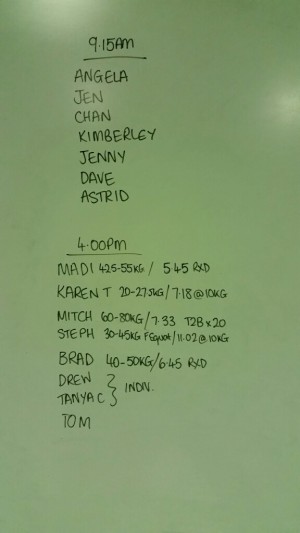 9.15AM
ANGELA
JEN
CHAN
KIMBERLEY
JENNY
DAVE
ASTRID
4.00PM
MADI 42.5-55KG / 5.45 RXD
KAREN T 20-27.5KG / 7.18 @ 10KG
MITCH 60-80KG / 7.33 T2B x 20
STEPH 30-45KG FSquat / 11.02 @ 10KG
BRAD 40-50KG / 6.45 RXD
DREW
TANYA C } INDIV.
TOM